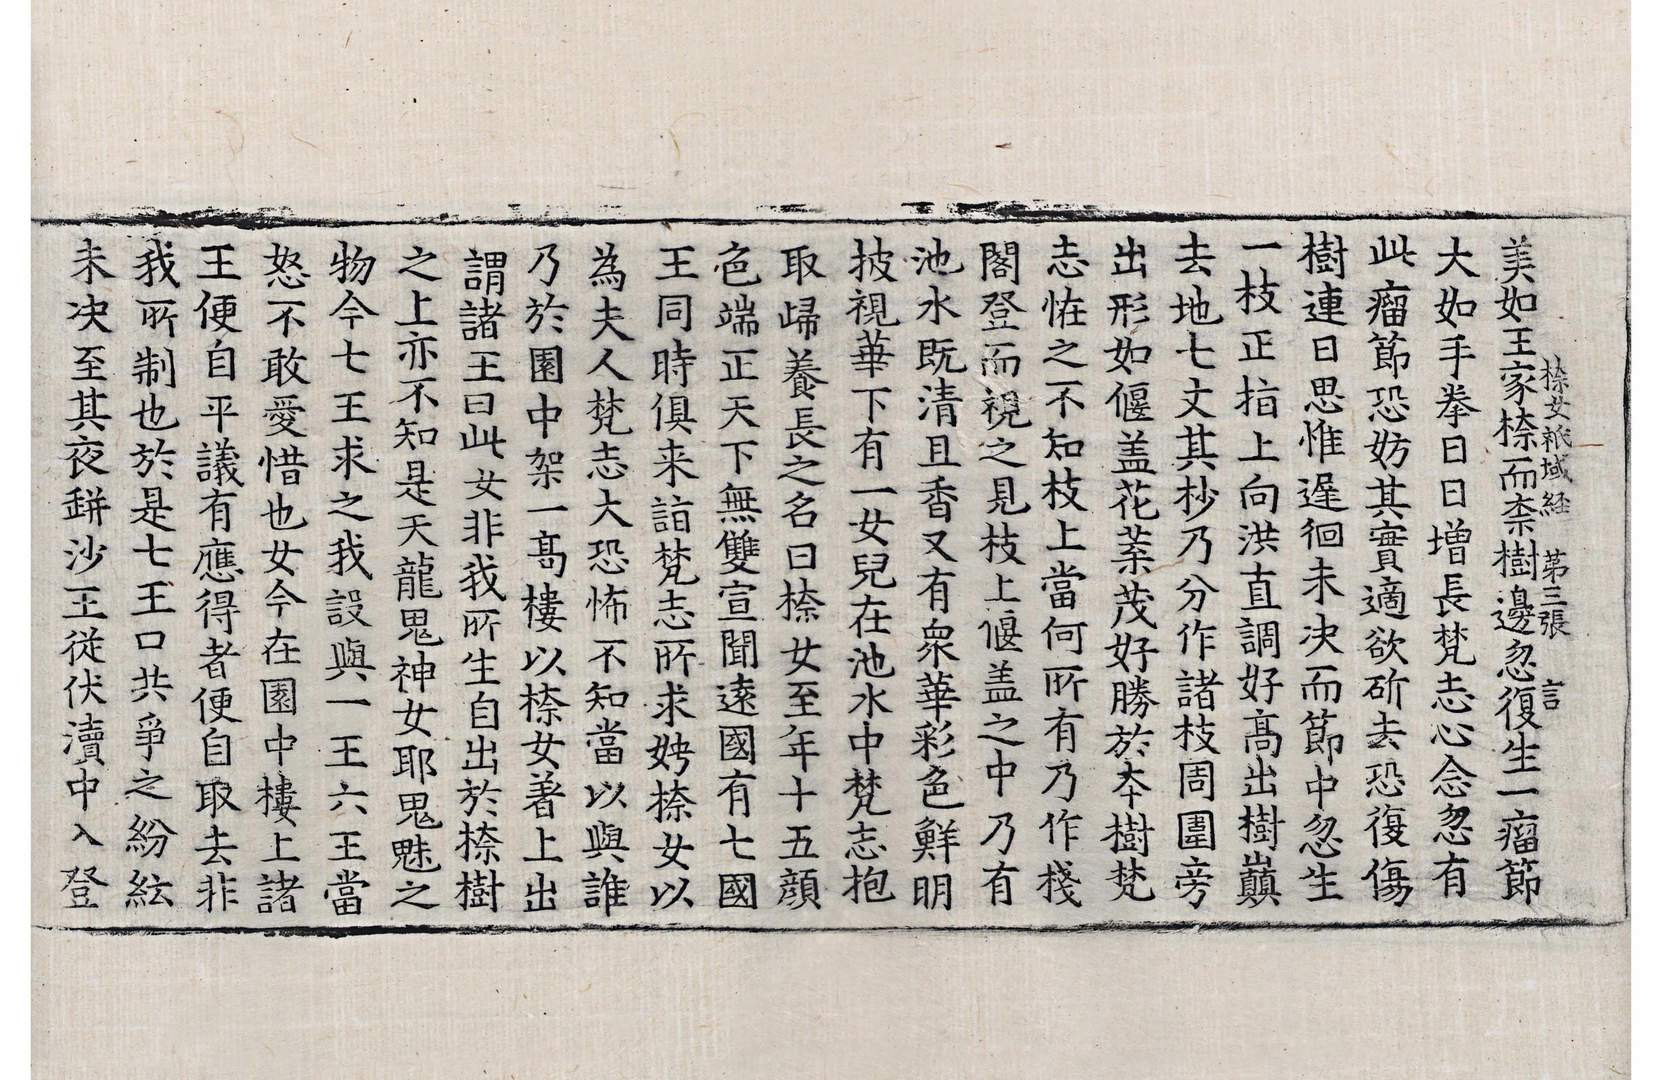 㮈女祇域経 第三張 言
美如王家㮈而柰樹邊忽復生一瘤節
大如手拳日日增長梵志心念忽有
此瘤節恐妨其實適欲斫去恐復傷
樹連日思惟遲徊未决而節中忽生
一枝正指上向洪直調好髙出樹巔
去地七丈其杪乃分作諸枝周圍旁
出形如偃盖花葉茂好勝於夲樹梵
志恠之不知枝上當何所有乃作棧
閣登而視之見枝上偃盖之中乃有
池水既清且香又有衆華彩色鮮明
披視華下有一女兒在池水中梵志抱
取歸養長之名曰㮈女至年十五顔
色端正天下無雙宣聞遠國有七國
王同時俱来詣梵志所求娉㮈女以
為夫人梵志大恐怖不知當以與誰
乃於園中架一髙樓以㮈女著上出
謂諸王曰此女非我所生自出於㮈樹
之上亦不知是天龍鬼神女耶鬼魅之
物今七王求之我設與一王六王當
怒不敢愛惜也女今在園中樓上諸
王便自平議有應得者便自取去非
我所制也於是七王口共爭之紛紜
未决至其夜缾沙王從伏瀆中入登